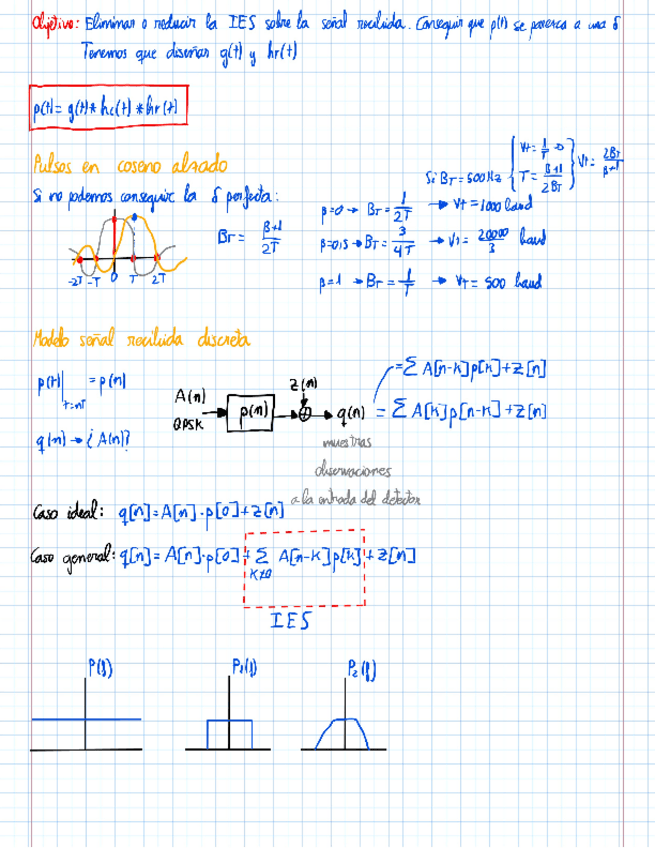 Objetivo: Eliminar o reducir la IES sobre la señal recibida. Conseguir que p(t) se parezca a una δ
Tenemos que diseñar g(t) y hr(t)
p(t) = g(t) * hc(t) * hr(t)
Pulsos en coseno alzado
Si BT = 500Hz { Vt = 1/T → T = β+1/2BT } Vt = 2BT/β+1
Si no podemos conseguir la δ perfecta:
BT = β+1/2T
β=0 → BT = 1/2T → Vt = 1000 baud
β=0,5 → BT = 3/4T → Vt = 2000/3 baud
β=1 → BT = 1/T → Vt = 500 baud
-2T -T 0 T 2T
Modelo señal recibida discreta
p(t)|t=nT = p(n)
q(n) → ¿A(n)?
A(n)
QPSK
p(n)
z(n)
q(n)
= Σ A[n-k]p[k]+z[n]
= Σ A[k]p[n-k]+z[n]
muestras
observaciones
a la entrada del detector
Caso ideal: q[n]=A[n]·p[0]+z[n]
Caso general: q[n]=A[n]·p[0]+ Σ k≠0 A[n-k]p[k]+z[n]
IES
P(f) P1(f) P2(f)